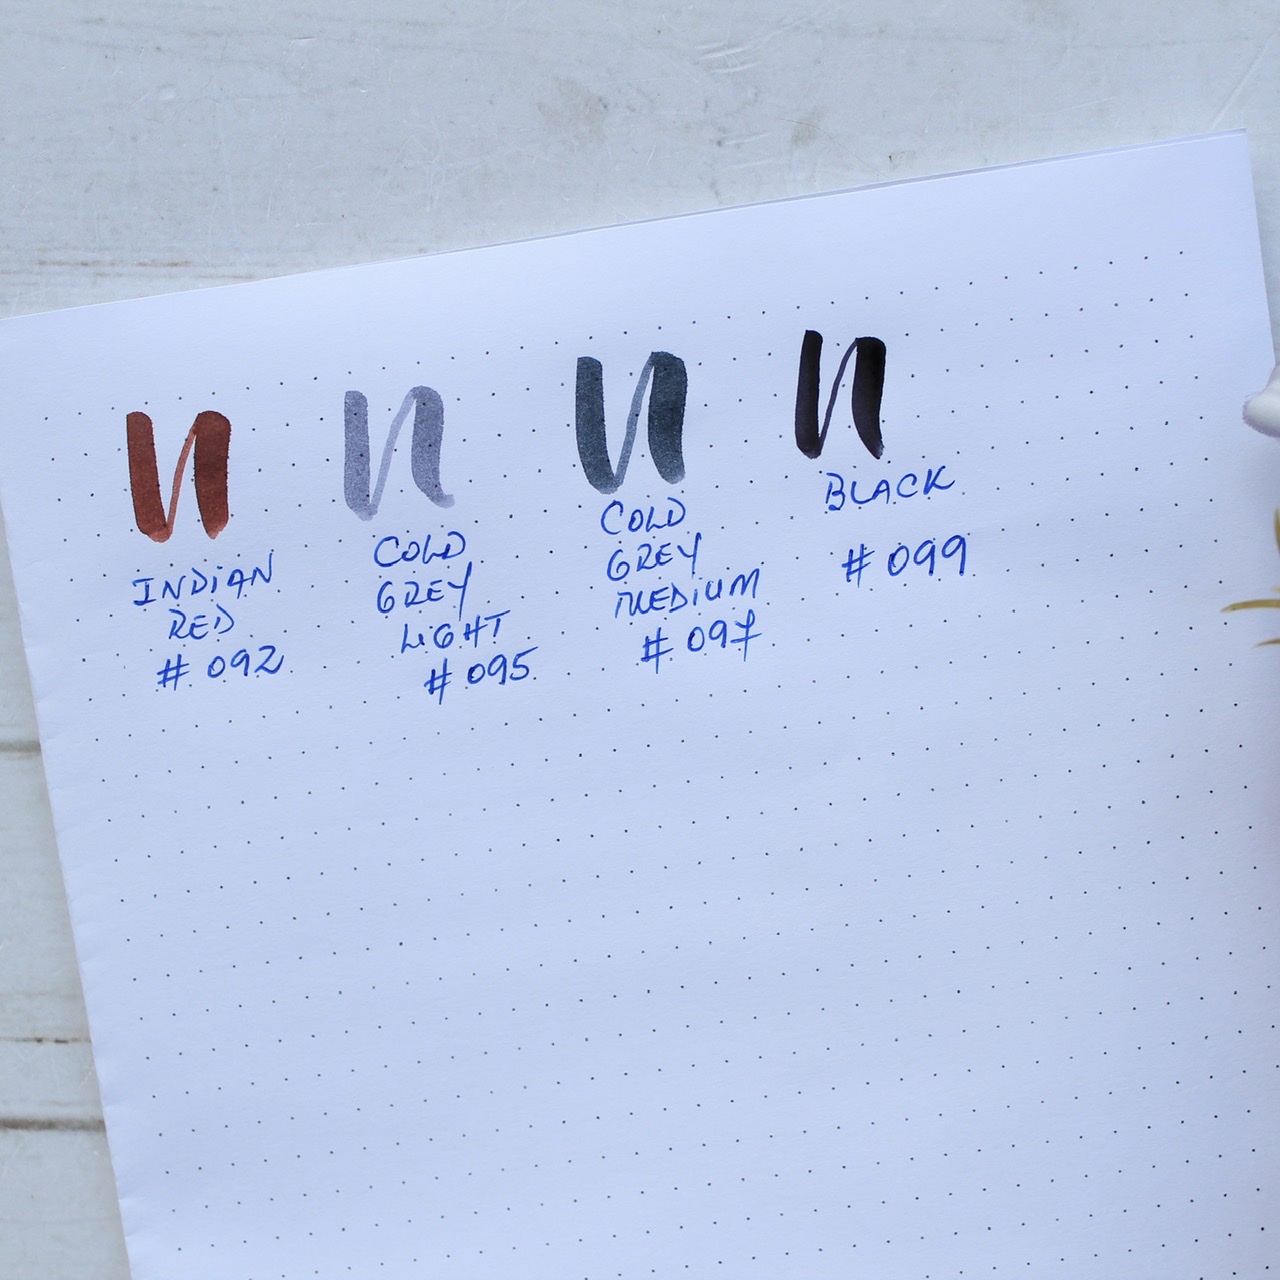 n
INDIAN
RED
# 092
n
COLD
GREY
LIGHT
# 095
n
COLD
GREY
MEDIUM
# 097
n
BLACK
# 099